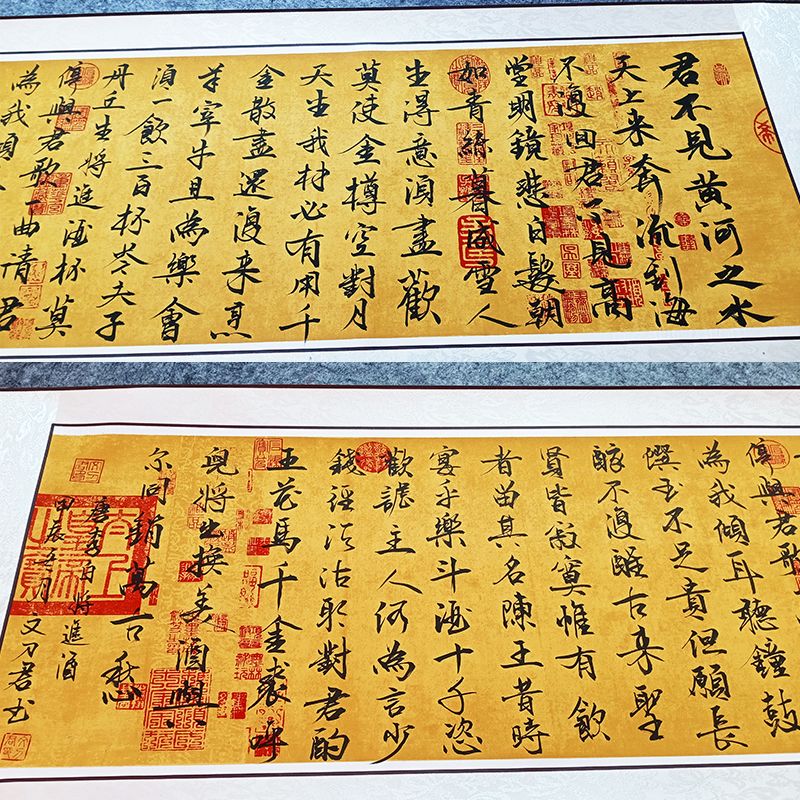 君不見黄河之水
天上来奔流到海
不復回君不見高
堂明鏡悲白髮朝
如青絲暮成雪人
生得意須盡歡
莫使金樽空對月
天生我材必有用千
金散盡還復来烹
羊宰牛且為樂會
須一飲三百杯岑夫子
丹丘生將進酒杯莫
停與君歌一曲請君
為我傾
停與君歌
為我傾耳聽鐘鼓
饌玉不足貴但願長
醉不復醒古来聖
賢皆寂寞惟有飲
者留其名陳王昔時
宴平樂斗酒十千恣
歡謔主人何為言少
錢徑須沽取對君酌
五花馬千金裘呼
兒將出換美酒與
尔同銷萬古愁
唐李白將進酒
甲辰五月文刀君书